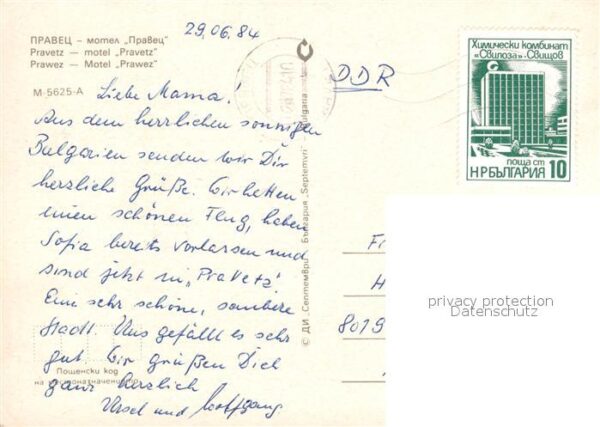 29.06.84
ПРАВЕЦ – мотел „Правец"
Pravetz – motel „Pravetz"
Prawez – Motel „Prawez"
М-5625-А
Liebe Mama!
Aus dem herrlichen sonnigen
Bulgarien senden wir Dir
herzliche Grüße. Wir hatten
einen schönen Flug, haben
Sofia bereits verlassen und
sind jetzt in „Pravetz".
Eine sehr schöne, saubere
Stadt. Uns gefällt es sehr
gut. Wir grüßen Dich
ganz herzlich
Ursel und Wolfgang
Пощенски код
на местоназначението
© ДИ „Септември" България „Septemvri" Bulgaria
DDR
Химически комбинат
„Свилоза"-Свищов
поща ст
НРБЪЛГАРИЯ 10
F
H
8019
privacy protection
Datenschutz